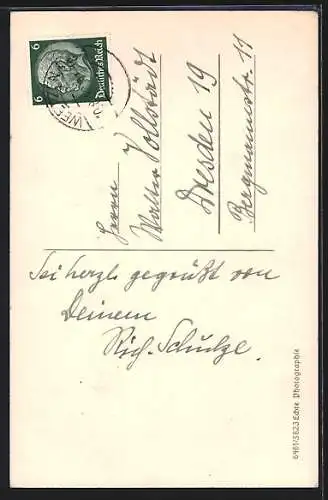 6
6
Deutsches Reich
Herrn
Walter Vollstädt
Dresden 19
Bergmannstr. 11
Sei herzl. gegrüßt von
Deinem
Rich. Schulze.
6481/3823 Echte Photographie